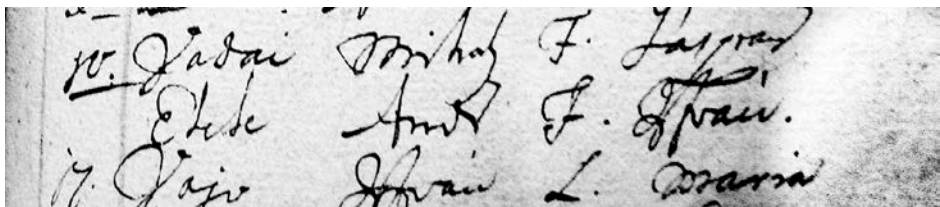 10. Vadai Mihaly F. Gaspar
Etele And F. Istvan.
17. Vajo Istvan L. Maria